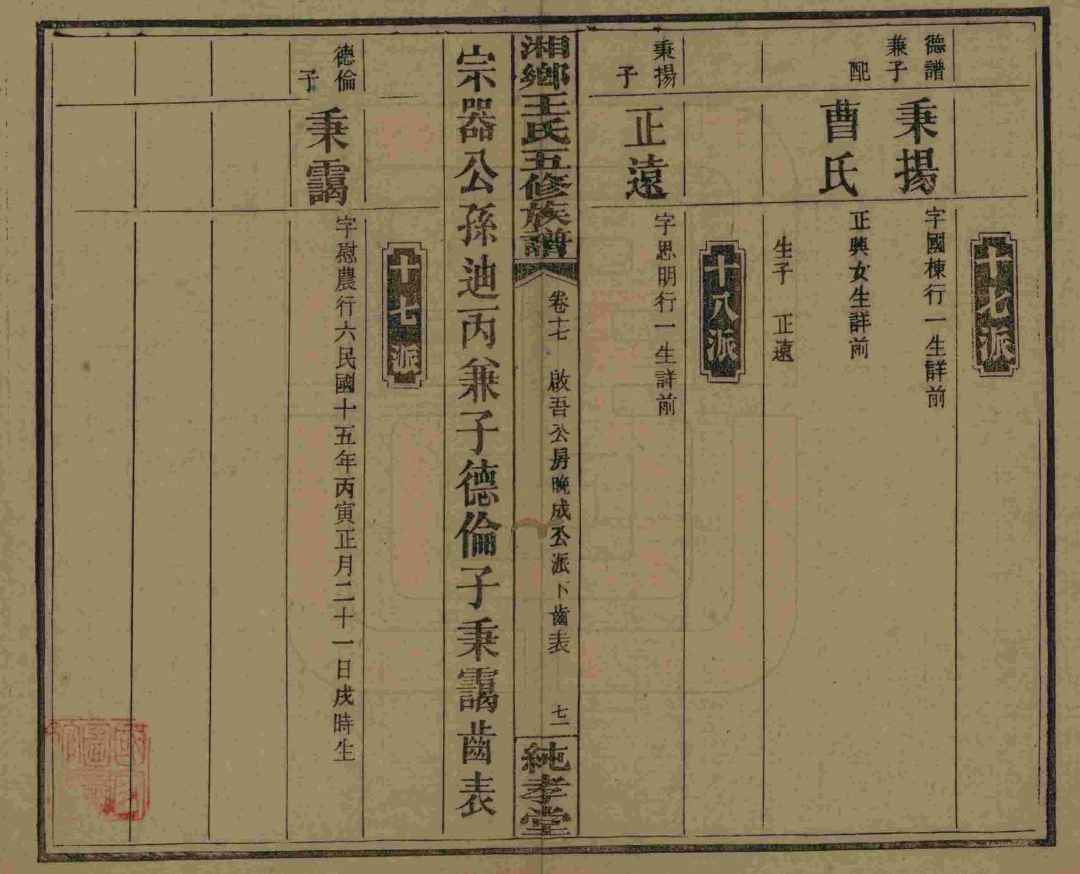 十七派
德譜
兼子
秉揚
字國棟行一生詳前
配
曹氏
正興女生詳前
生子 正遠
十八派
秉揚
子
正遠
字思明行一生詳前
湘鄉王氏五修族譜
卷十七 啟吾公房晚成公派下齒表 七一
純孝堂
宗器公孫迪丙兼子德倫子秉靄齒表
十七派
德倫
子
秉靄
字慰農行六民國十五年丙寅正月二十一日戌時生